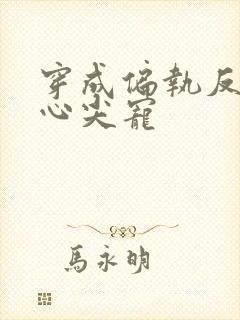 穿成偏執反
心尖寵
馬永明